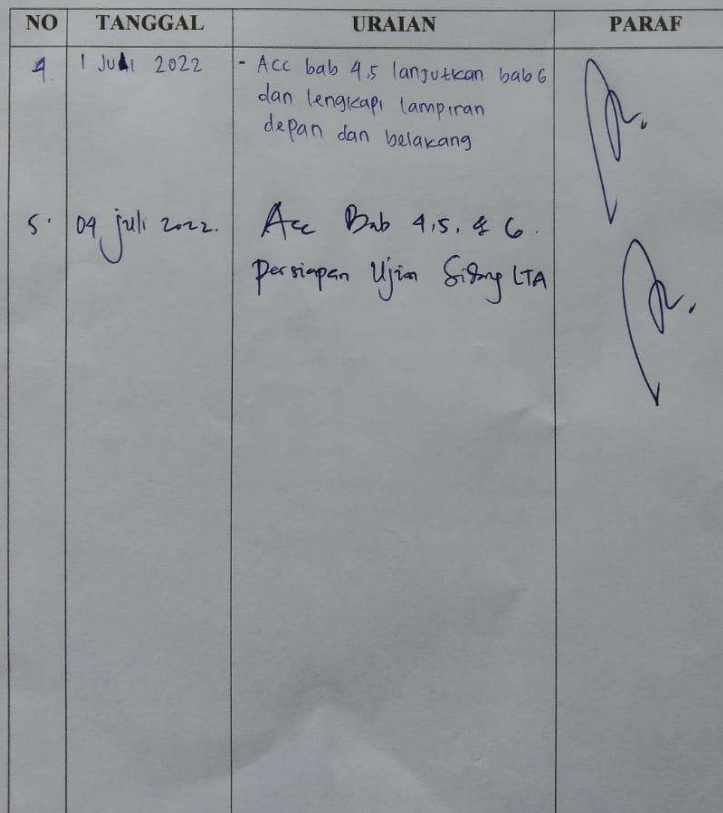 NO TANGGAL URAIAN PARAF
4. 1 Juli 2022 - Acc bab 4,5 lanjutkan bab 6
dan lengkapi lampiran
depan dan belakang
5. 04 juli 2022. Acc Bab 4,5. & 6.
Persiapan Ujian Sidang LTA